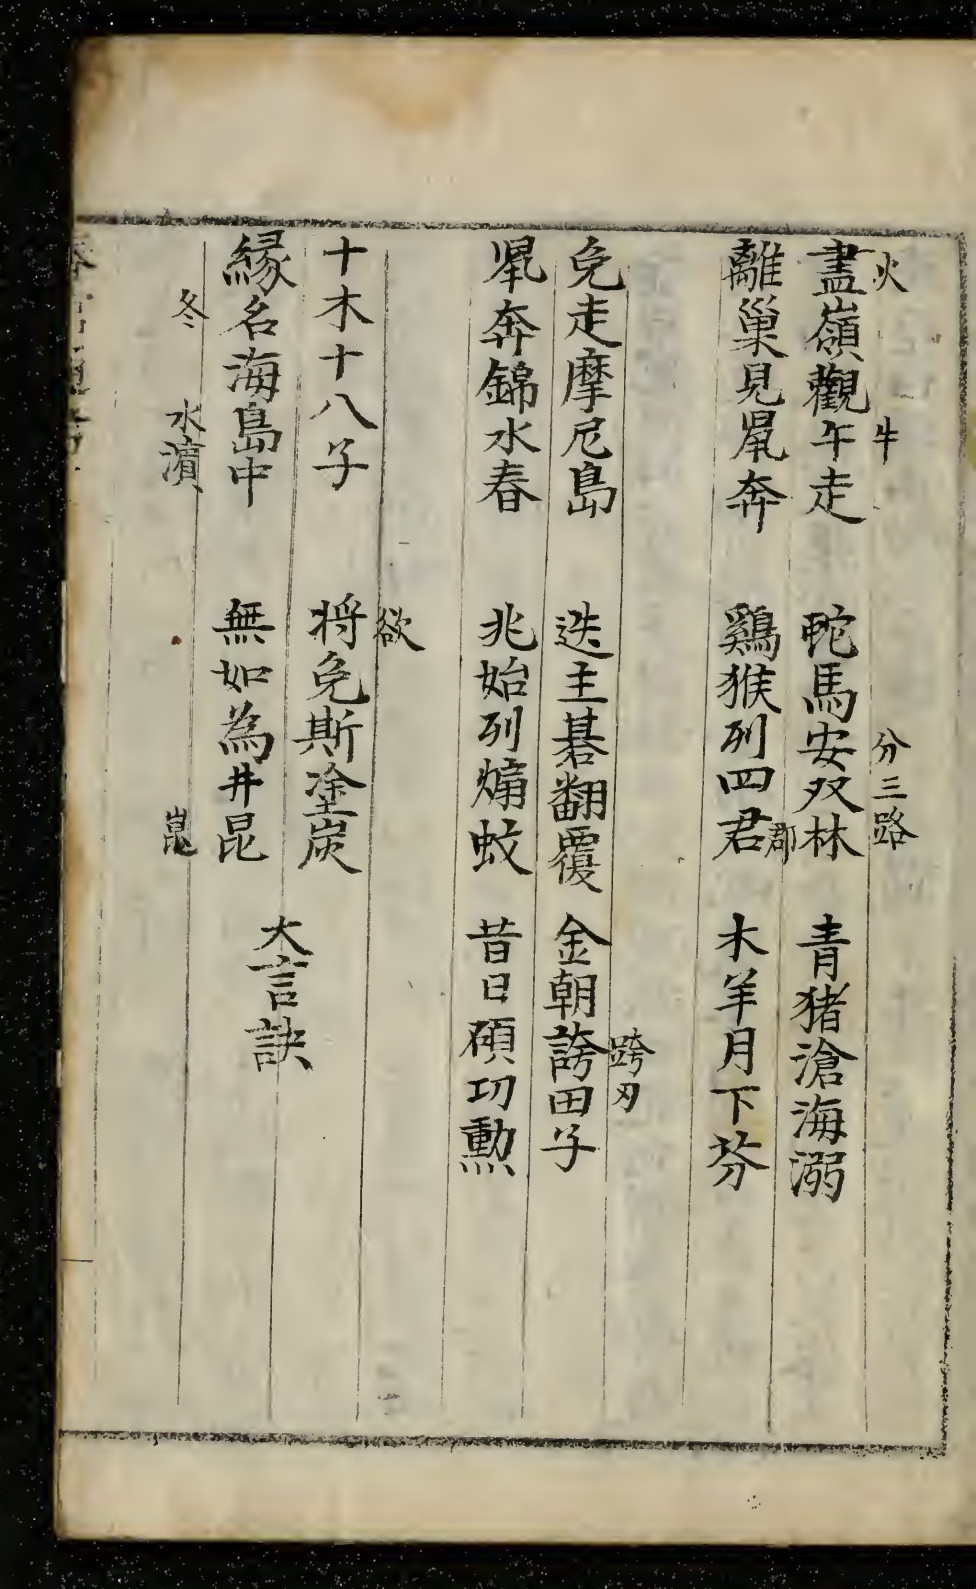 火 牛 分三路
盡嶺觀午走 䶆馬安双林 青猪滄海溺
郡
離巢見鼠奔 鷄猴列四君 木羊月下芬
跨刃
兔走摩尼島 迭主碁翻覆 金朝誇田子
鼠奔錦水春 兆始列煽蚊 昔日碩功勲
欲
十木十八子 将免斯塗炭
緣名海島中 無如為井昆
大言訣
冬 水濱 崑